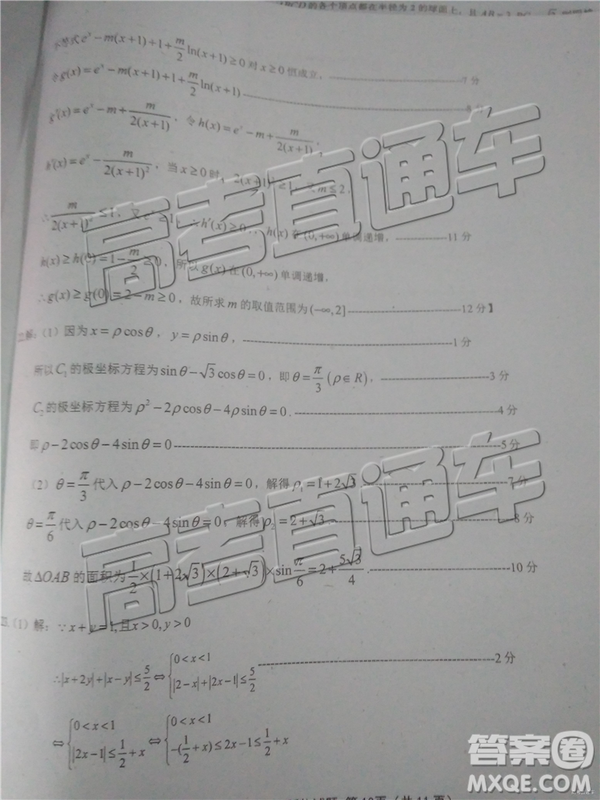 的各个顶点都在半径为 2 的球面上，且
不等式 e^x − m(x+1) + 1 + m/2 ln(x+1) ≥ 0 对 x ≥ 0 恒成立，----7 分
令 g(x) = e^x − m(x+1) + 1 + m/2 ln(x+1) ----8 分
g'(x) = e^x − m + m/(2(x+1))，令 h(x) = e^x − m + m/(2(x+1))，
h'(x) = e^x − m/(2(x+1)²)，当 x ≥ 0 时，≤ 1，又 m ≤ 2，
∴ m/(2(x+1)²) ≤ 1，又 e^x ≥ 1，∴ h'(x) ≥ 0，h(x) 在 (0,+∞) 单调递增，----11 分
h(x) ≥ h(0) = 1 − m/2 ≥ 0，所以 g(x) 在 (0,+∞) 单调递增，
∴ g(x) ≥ g(0) = 2 − m ≥ 0，故所求 m 的取值范围为 (−∞,2] ----12 分】
解：（1）因为 x = ρcosθ，y = ρsinθ，----1 分
所以 的极坐标方程为 sinθ − √3cosθ = 0，即 θ = π/3 (ρ ∈ R)，----3 分
的极坐标方程为 ρ² − 2ρcosθ − 4ρsinθ = 0．----4 分
即 ρ − 2cosθ − 4sinθ = 0 ----5 分
（2）θ = π/3 代入 ρ − 2cosθ − 4sinθ = 0，解得 ρ₁ = 1 + 2√3．----7 分
θ = π/6 代入 ρ − 2cosθ − 4sinθ = 0，解得 ρ₂ = 2 + √3．----8 分
故 ΔOAB 的面积为 1/2 × (1+2√3) × (2+√3) × sin π/6 = 2 + 5√3/4．----10 分
（1）解：∵ x + y = 1，且 x > 0, y > 0
∴ |x+2y| + |x−y| ≤ 5/2 ⇔ { 0 < x < 1 ----2 分
|2−x| + |2x−1| ≤ 5/2
⇔ { 0 < x < 1 ⇔ { 0 < x < 1
|2x−1| ≤ 1/2 + x −(1/2 + x) ≤ 2x−1 ≤ 1/2 + x
高考直通车
高考直通车
高考直通车
答案圈
MXQE.COM